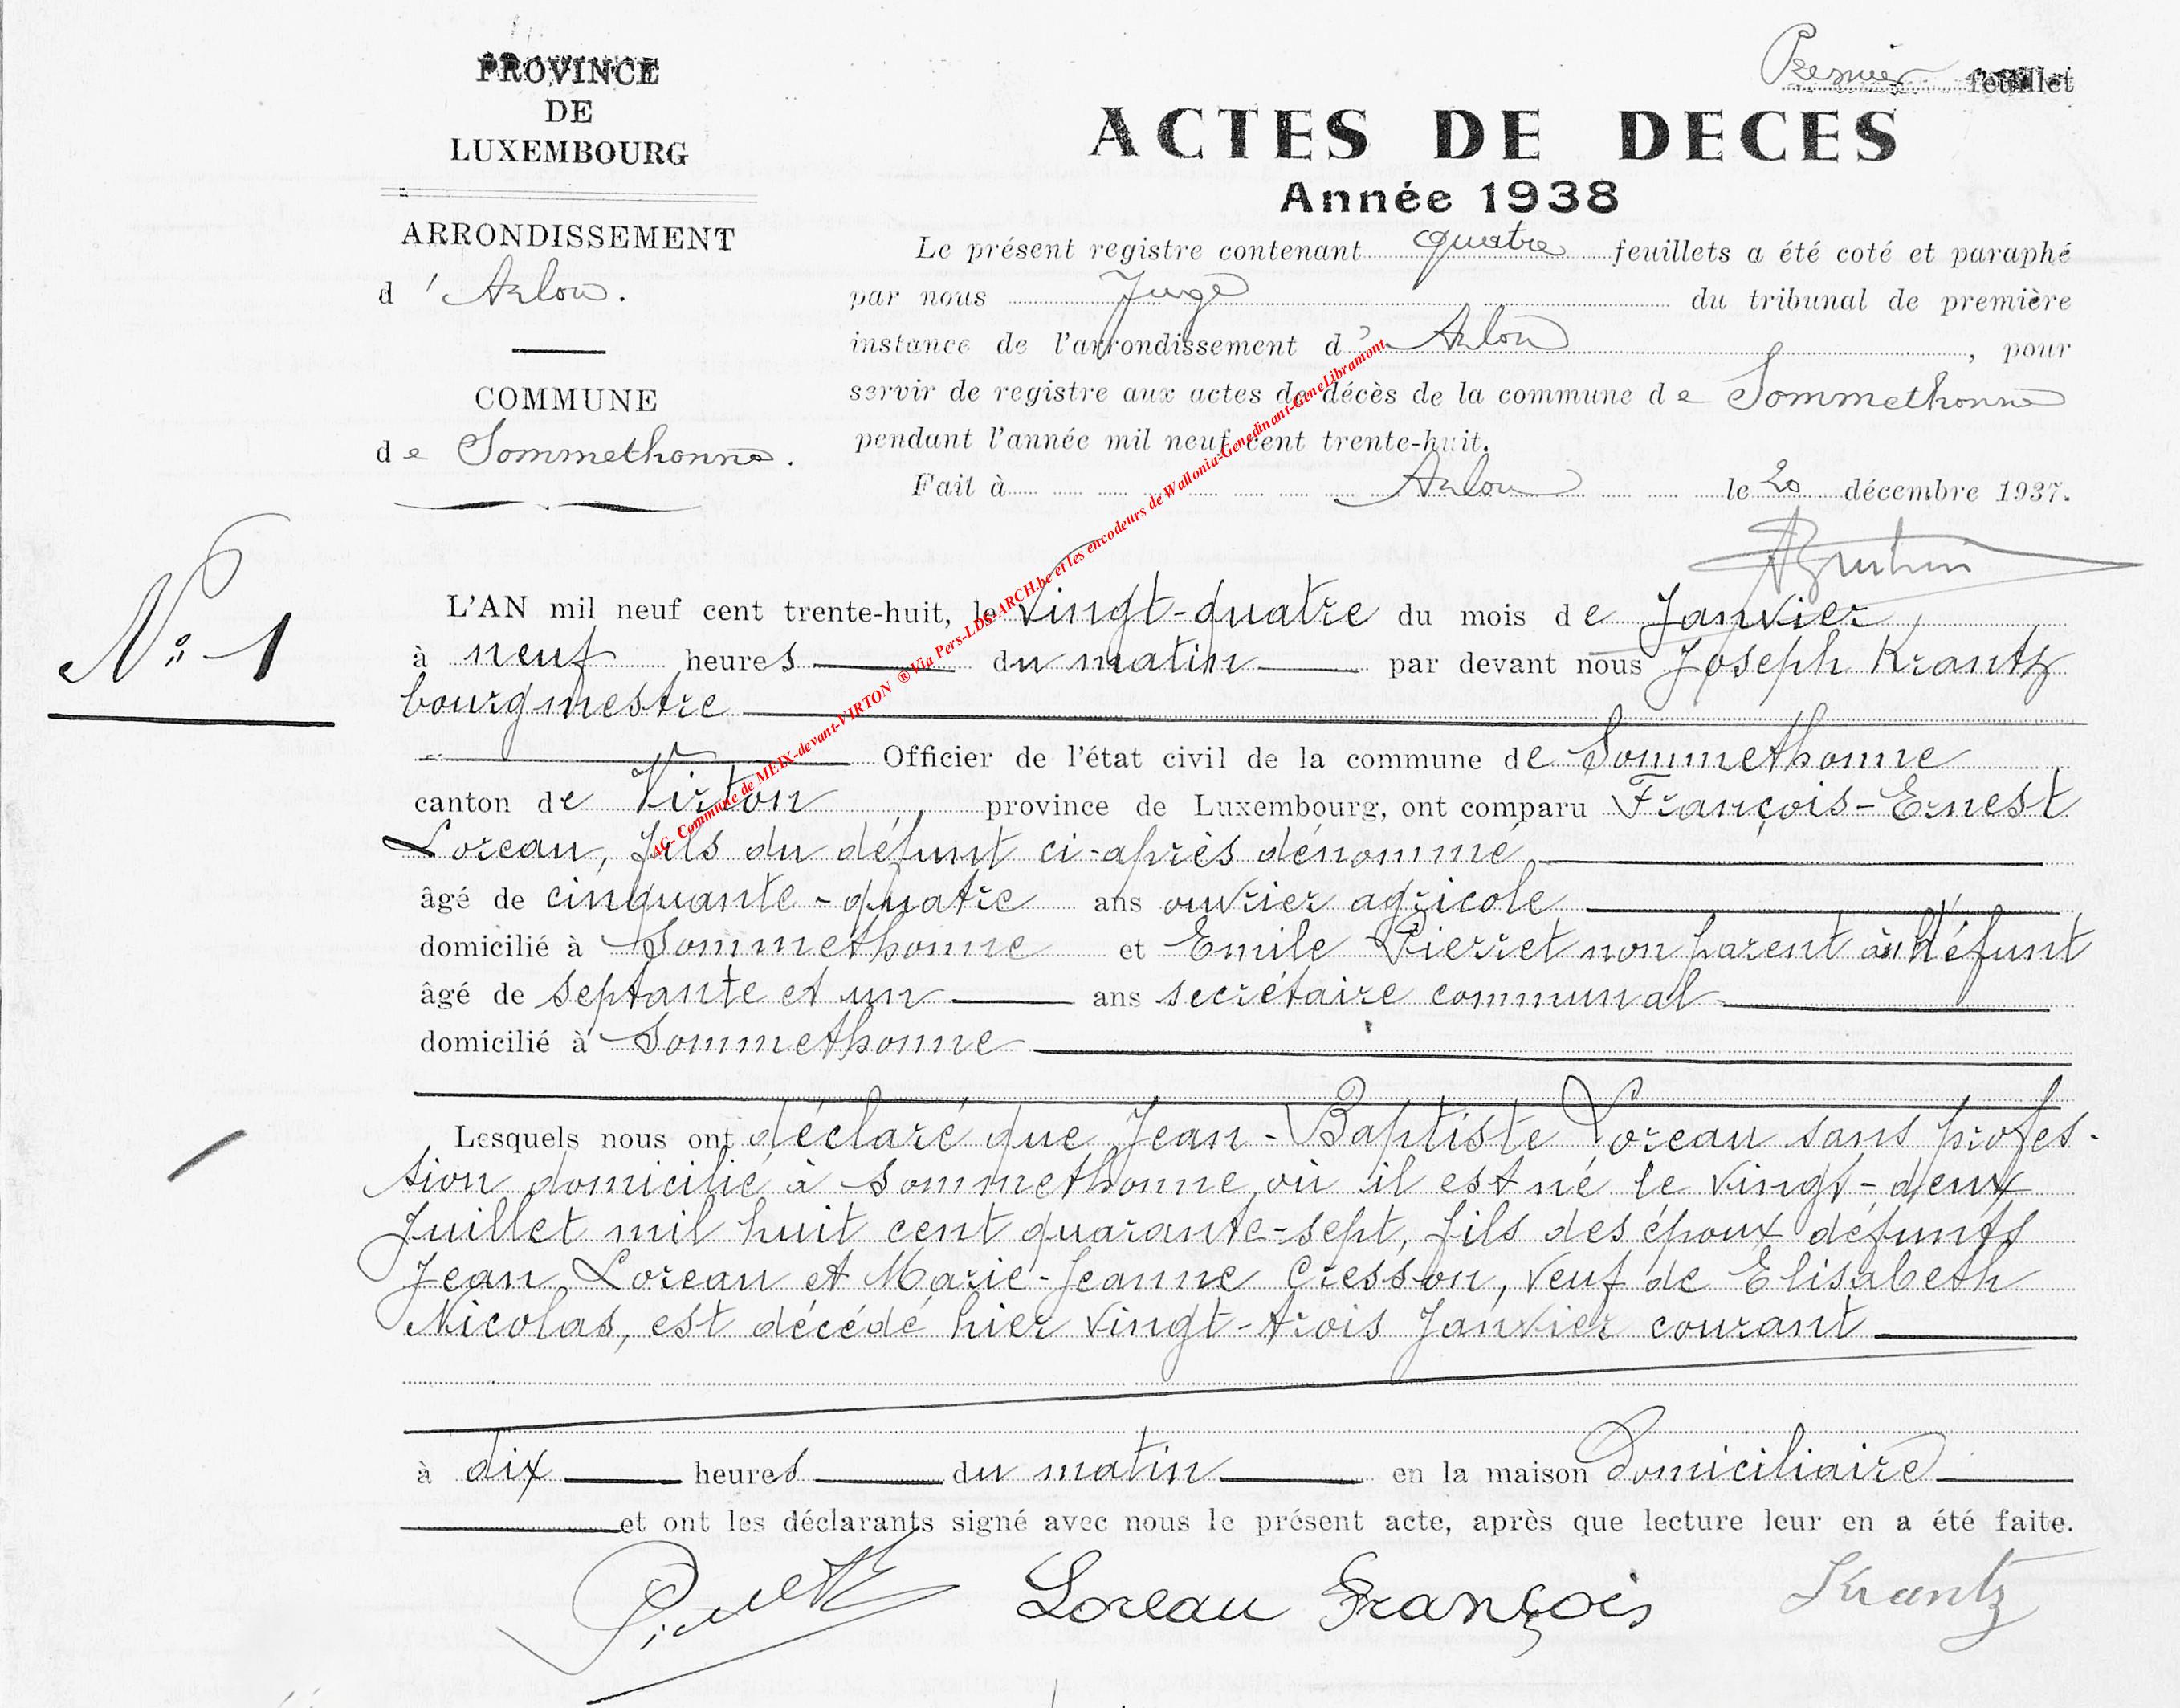 Premier feuillet
PROVINCE
DE
LUXEMBOURG
ARRONDISSEMENT
d' Arlon.
COMMUNE
de Sommethonne.
ACTES DE DECES
Année 1938
Le présent registre contenant quatre feuillets a été coté et paraphé
par nous Juge du tribunal de première
instance de l'arrondissement d' Arlon, pour
servir de registre aux actes de décès de la commune de Sommethonne
pendant l'année mil neuf cent trente-huit.
Fait à Arlon le 20 décembre 1937.
N° 1
L'AN mil neuf cent trente-huit, le vingt-quatre du mois de Janvier,
à neuf heures du matin par devant nous Joseph Krantz
bourgmestre
Officier de l'état civil de la commune de Sommethonne
canton de Virton province de Luxembourg, ont comparu François-Ernest
Loreau, fils du défunt ci-après dénommé
âgé de cinquante-quatre ans ouvrier agricole
domicilié à Sommethonne et Emile Pierret non parent au défunt
âgé de septante et un ans secrétaire communal
domicilié à Sommethonne
Lesquels nous ont déclaré que Jean-Baptiste Loreau sans profes-
sion domicilié à Sommethonne, où il est né le vingt-deux
Juillet mil huit cent quarante-sept, fils des époux défunts
Jean Loreau et Marie-Jeanne Cresson, veuf de Elisabeth
Nicolas, est décédé hier vingt-trois Janvier courant
à dix heures du matin en la maison Domiciliaire
et ont les déclarants signé avec nous le présent acte, après que lecture leur en a été faite.
Pierret Loreau François Krantz
AG- Commune de MEIX-devant-VIRTON ® Via Pers-LDS-ARCH.be et les encodeurs de Wallonia-Genedinant-GeneLibramont